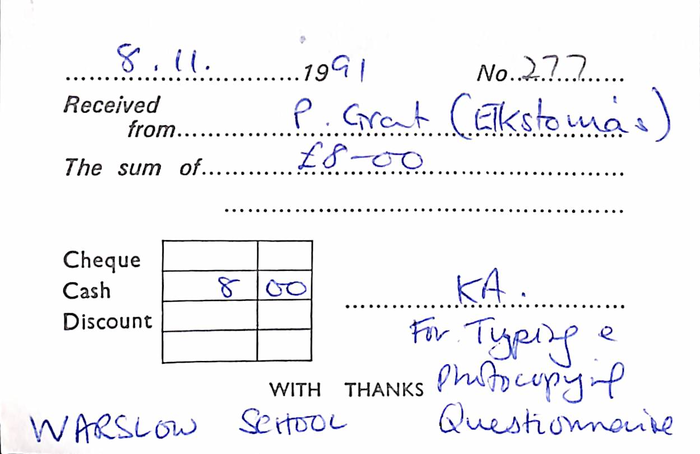 8.11. 1991 No. 277
Received from P. Grant (Elkstones)
The sum of £8-00
Cheque
Cash 8 00
Discount
KA.
For Typing e
Photocopying
WITH THANKS
Questionnaire
WARSLOW SCHOOL